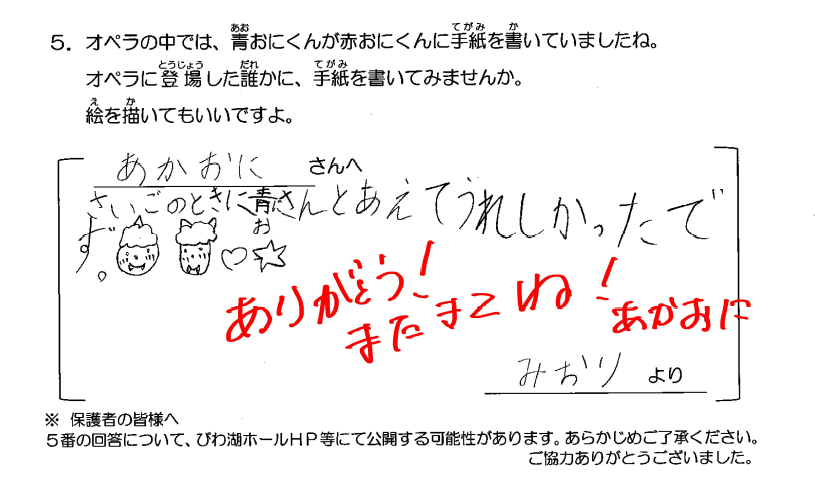 5. オペラの中では、青おにくんが赤おにくんに手紙を書いていましたね。
オペラに登場した誰かに、手紙を書いてみませんか。
絵を描いてもいいですよ。
あかおに さんへ
さいごのときに青さんとあえてうれしかったで
お
す。
ありがとう!
またきてね!
あかおに
みおり より
※ 保護者の皆様へ
5番の回答について、びわ湖ホールHP等にて公開する可能性があります。あらかじめご了承ください。
ご協力ありがとうございました。